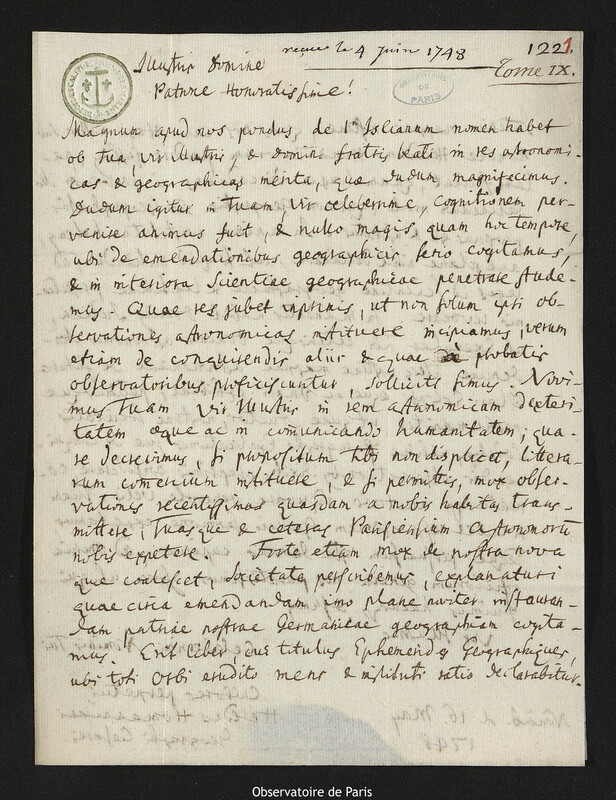 reçue le 4 juin 1748
1221.
Tome IX.
Illustris Domine
Patrone Honoratissime!
OBSERVATOIRE
DE
PARIS
Magnum apud nos pondus, de l'Islianum nomen habet
ob tua, vir illustris, & domini fratris beati in res astronomi-
cas & geographicas merita, quae dudum magnifecimus.
Dudum igitur in tuam, vir celeberrime, cognitionem per-
venire animus fuit, & nullo magis, quam hoc tempore,
ubi de emendationibus geographicis serio cogitamus,
& in interiora scientiae geographicae penetrare stude-
mus. Quae res jubet inprimis, ut non solum ipsi ob-
servationes astronomicas instituere incipiamus, verum
etiam de conquirendis aliis & quae à probatis
observatoribus proficiscuntur, solliciti simus. Novi-
mus Tuam Vir Illustris in rem astronomicam dexteri-
tatem aeque ac in comunicando humanitatem; qua-
re decrevimus, si propositum tibi non displicet, littera-
rum comercium instituere, & si permittis, mox obser-
vationes recentissimas quasdam a nobis habitas trans-
mittere, tuasque & ceteras Parisiensium astronomorū
nobis expetere. Forte etiam mox de nostra nova
que coalescet, societate perscribemus, explanaturi
quae circa emendandam imo plane noviter instauran-
dam patriae nostrae Germanicae geographiam cogita-
mus. Erit liber, cui titulus Ephemerides Geographiques,
ubi toti orbi erudito mens & instituti ratio declarabitur.
Observatoire de Paris